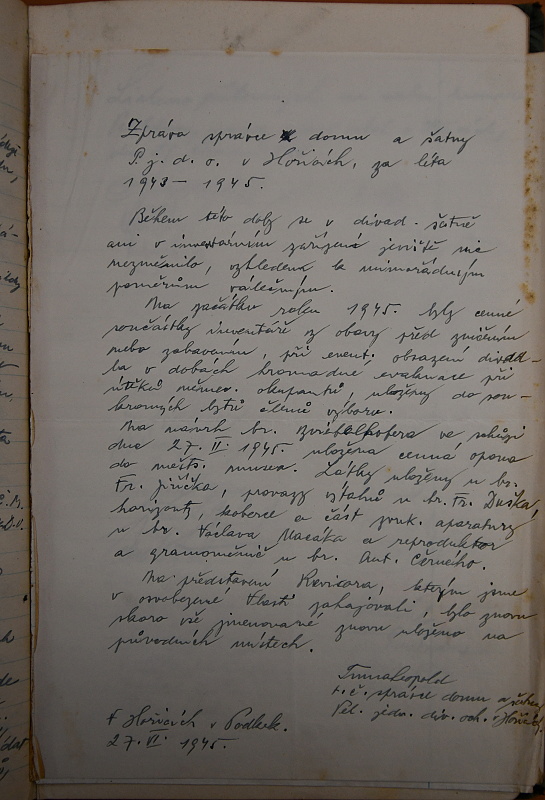 Zpráva správce domu a šatny
P. j. d. o. v Hořicích, za léta
1943 – 1945.
Během této doby se v divad. šatně
ani v inventárním zařízení jeviště nic
nezměnilo, vzhledem k mimořádným
poměrům válečným.
Na začátku roku 1945. byly cenné
součástky inventáře z obavy před zničením
nebo zabavením, při event. obsazení divad-
la v dobách hromadné evakuace při
útěků němec. okupantů, uloženy do sou-
kromých bytů členů výboru.
Na návrh br. ve schůzi
dne 27. II. 1945. uložena cenná opona
do měst. musea. Látky uloženy u br.
Fr. Jíříčka, provazy u br. Fr. Duška,
horizonty, koberce a část zvuk. aparatury
u br. Václava Macáka a reproduktor
a gramoměnič u br. Ant. Černého.
Na představení Revisora, kterým jsme
v osvobozené vlasti zahajovali, bylo znovu
skoro vše jmenované znovu uloženo na
původních místech.
t. č. správce domu a šatny
Pel. jedn. div. och. v Hořicích
V Hořicích v Podkrk.
27. VI. 1945.